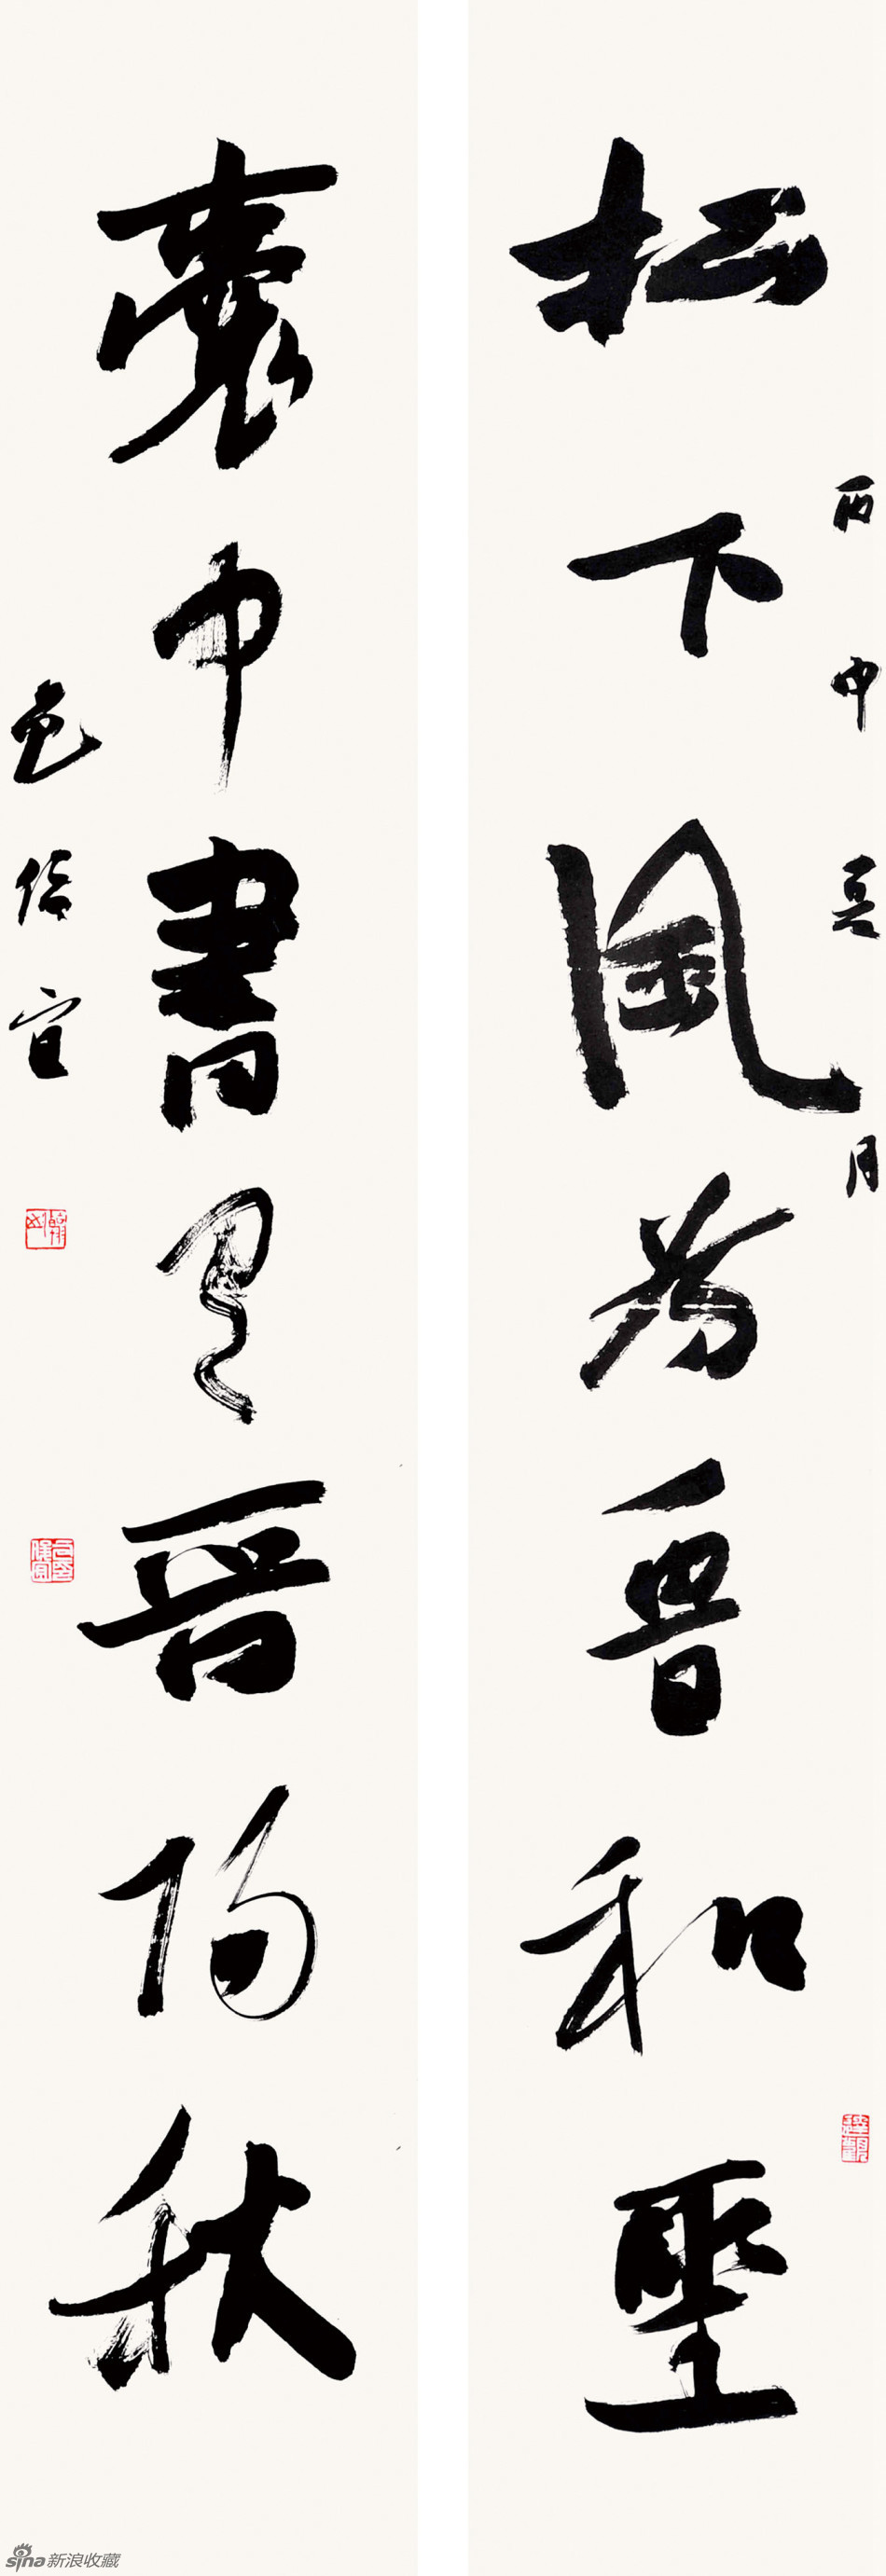 松下風為魯和聖
丙申夏月
囊中書有晉陽秋
包俊宜
sina新浪收藏